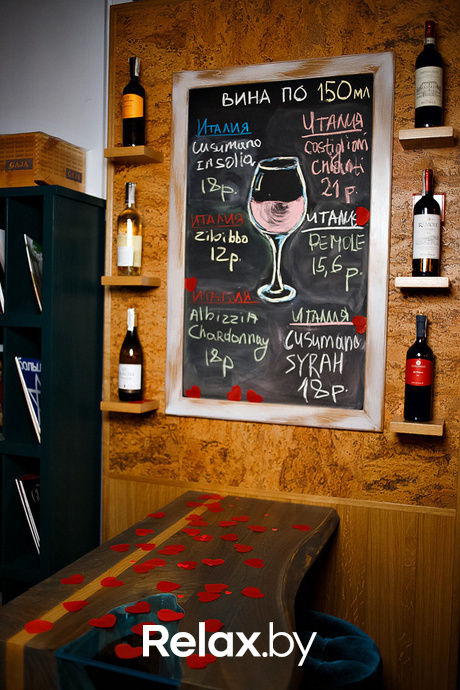 ВИНА ПО 150МЛ
ИТАЛИЯ
Cusumano
Insolia
18р.
ИТАЛИЯ
Zibibbo
12р.
ИТАЛИЯ
Albizzia
Chardonnay
18р
ИТАЛИЯ
Castiglioni
Chianti
21р.
ИТАЛИЯ
REMOLE
15,6р.
ИТАЛИЯ
Cusumano
SYRAH
18р.
GAJA
Relax.by